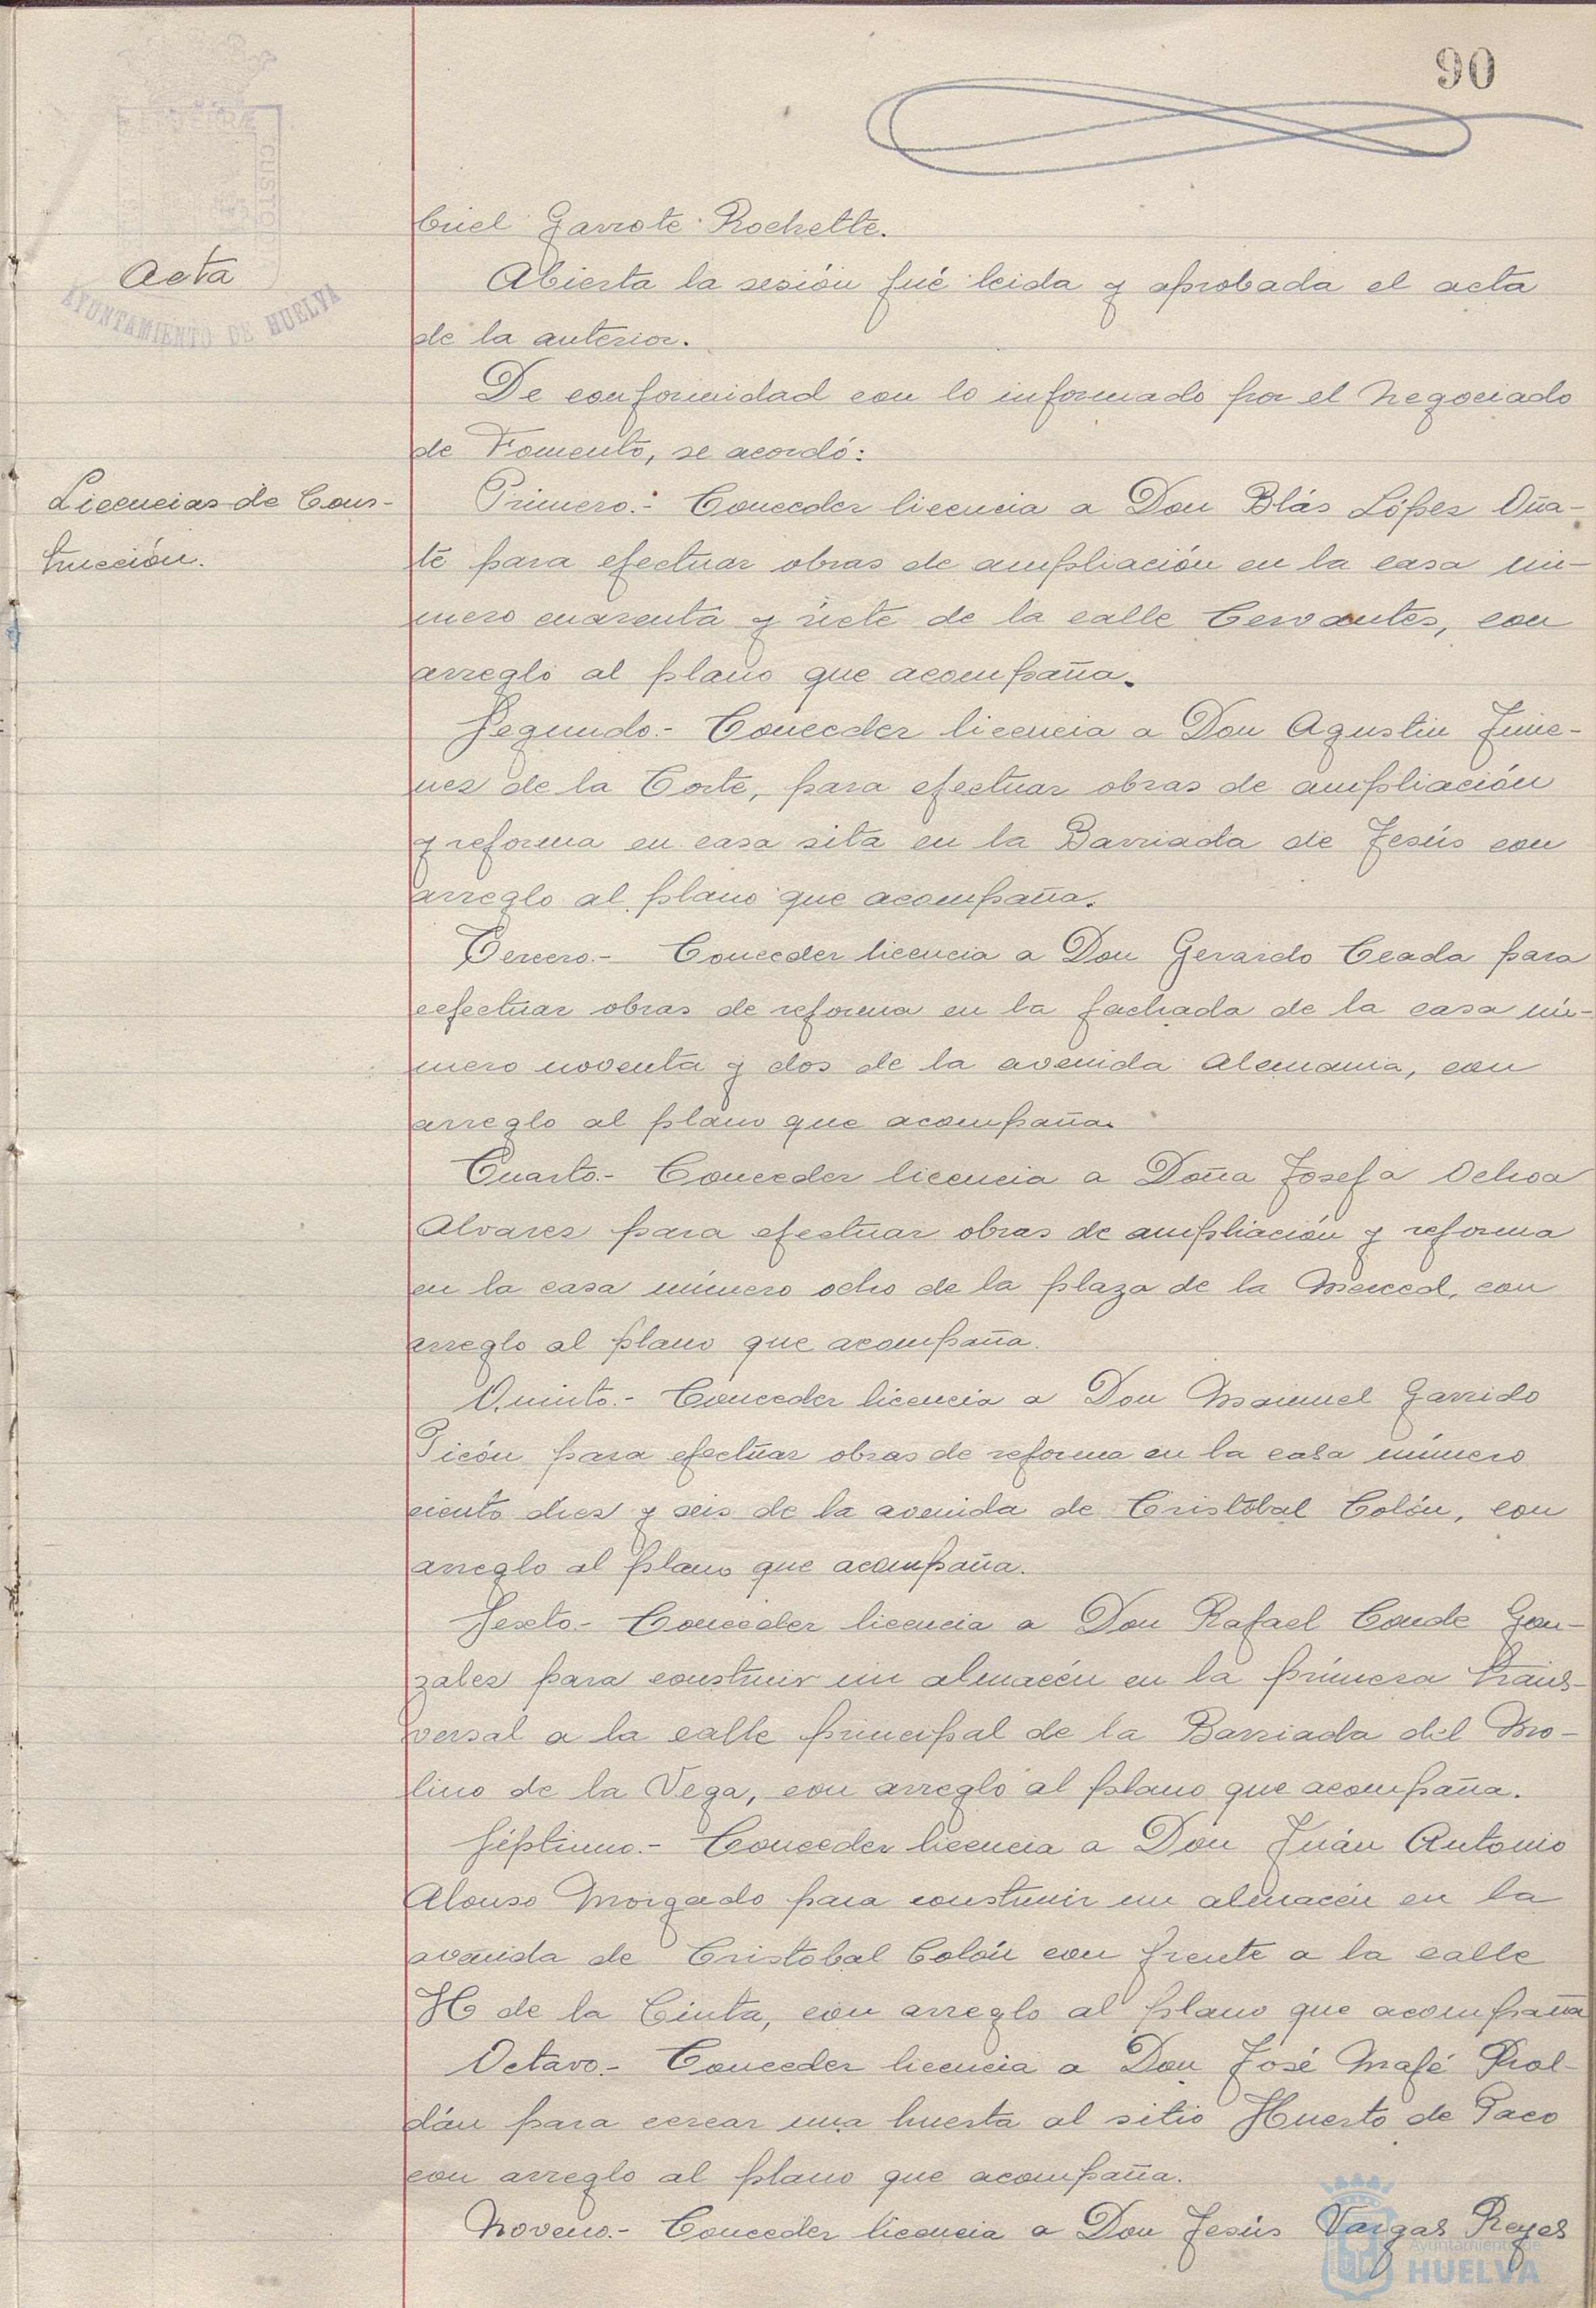 90
cuel Garrote Rochette.
Acta
AYUNTAMIENTO DE HUELVA
Abierta la sesión fué leida y aprobada el acta
de la anterior.
De conformidad con lo informado por el Negociado
de Fomento, se acordó:
Licencias de Cons-
trucción.
Primero.- Conceder licencia a Don Blás López Oña-
te para efectuar obras de ampliación en la casa nú-
mero cuarenta y siete de la calle Cervantes, con
arreglo al plano que acompaña.
Segundo.- Conceder licencia a Don Agustin Jime-
nez de la Corte, para efectuar obras de ampliación
y reforma en casa sita en la Barriada de Jesús con
arreglo al plano que acompaña.
Tercero.- Conceder licencia a Don Gerardo Ceada para
eefectuar obras de reforma en la fachada de la casa nú-
mero noventa y dos de la avenida Alemania, con
arreglo al plano que acompaña.
Cuarto.- Conceder licencia a Doña Josefa Ochoa
Alvarez para efectuar obras de ampliación y reforma
en la casa número ocho de la plaza de la Merced, con
arreglo al plano que acompaña.
Quinto.- Conceder licencia a Don Manuel Garrido
Picón para efectuar obras de reforma en la casa número
ciento diez y seis de la avenida de Cristóbal Colón, con
arreglo al plano que acompaña.
Sexto.- Conceder licencia a Don Rafael Conde Gon-
zalez para construir un almacén en la primera trans-
versal a la calle principal de la Barriada del Mo-
lino de la Vega, con arreglo al plano que acompaña.
Séptimo.- Conceder licencia a Don Juán Antonio
Alonso Morgado para construir un almacén en la
avenida de Cristobal Colón con frente a la calle
H de la Cinta, con arreglo al plano que acompaña
Octavo.- Conceder licencia a Don José Mafé Rol-
dán para cercar una huerta al sitio Huerto de Paco
con arreglo al plano que acompaña.
Noveno.- Conceder licencia a Don Jesús Vargas Reyes
Ayuntamiento de
HUELVA